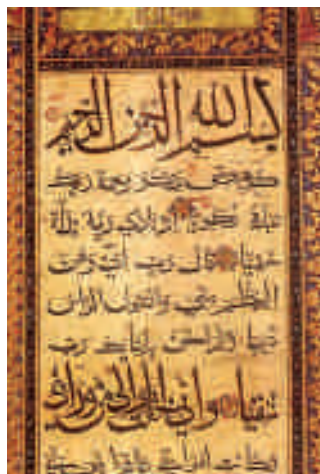 بسم الله الرحمن الرحيم
كهيعص ذكر رحمة ربك
عبده زكريا إذ نادى ربه نداء
خفيا قال رب إني وهن
العظم مني واشتعل الرأس
شيبا ولم أكن بدعائك رب
شقيا وإني خفت الموالي من ورائي
وكانت امرأتي عاقرا